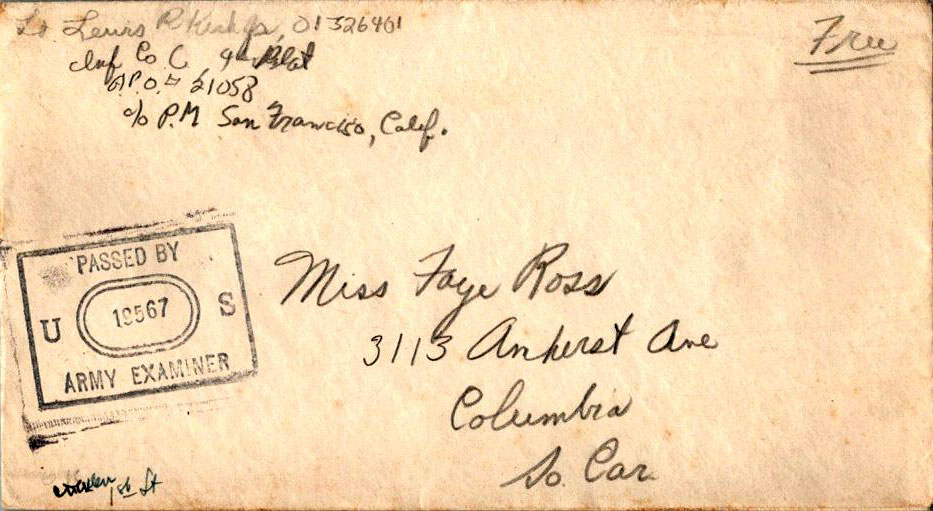 Lt. Lewis R 01326401
Inf Co C, 9th Plat
A.P.O. # 21058
c/o P.M San Francisco, Calif.
Free
PASSED BY
U 19567 S
ARMY EXAMINER
Miss Faye Ross
3113 Amherst Ave
Columbia
So. Car.
1st Lt